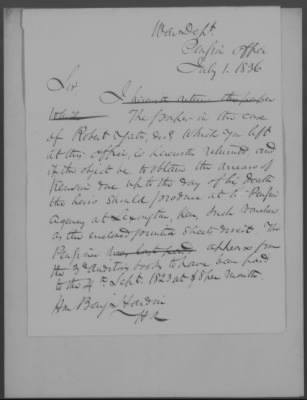 War Dept.
Pension Office
July 1. 1836
Sir
I herewith return the paper
which The paper in the case
of Robert Yates, and which you left
at this office, is herewith returned, and
if the object be to obtain the arrears of
Pension due up to the day of his death
the heirs should produce at the Pension
Agency at Lexington, Ken, such vouchers
as the enclosed printed sheets direct. The
Pensioner was last paid appears from
the 3d Auditors books to have been paid
to the 4th Sept. 1823 at $8 per month.
Hon Benj Hardin
HR